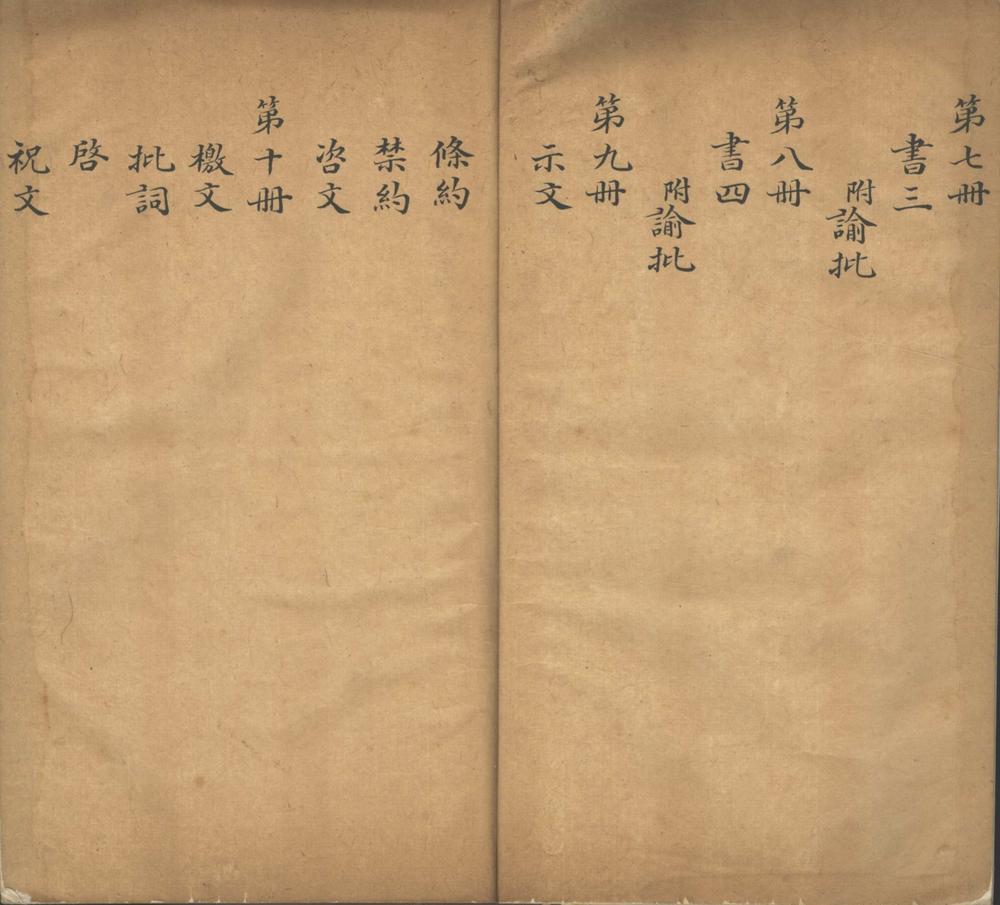 第七冊
書三
附諭批
第八冊
書四
附諭批
第九冊
示文
條約
禁約
咨文
第十冊
檄文
批詞
啓
祝文